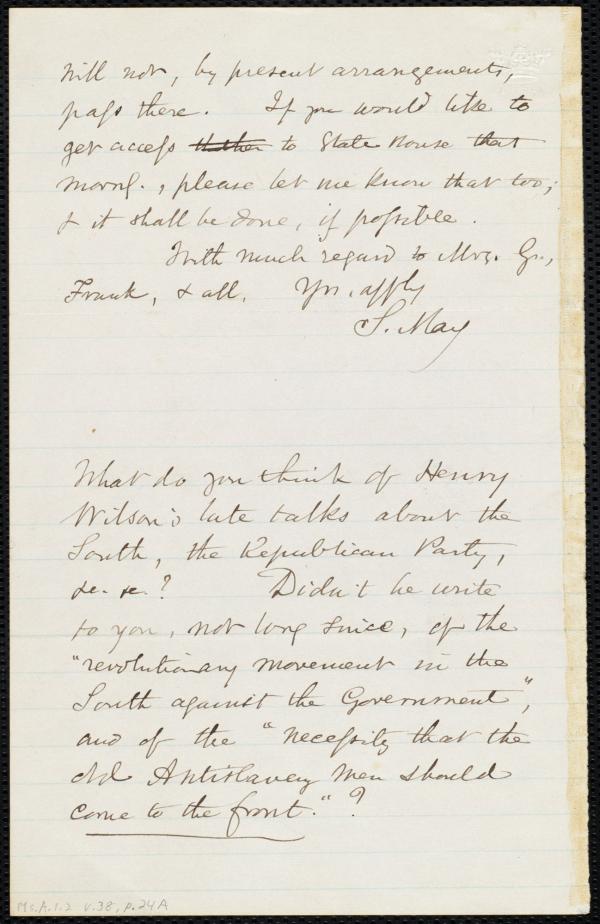 will not, by present arrangements,
pass there. If you would like to
get access thither to State House that
morng., please let me know that too;
& it shall be done, if possible.
With much regard to Mrs. G.,
Frank, & all, Yrs. affly
S. May
What do you think of Henry
Wilson's late talks about the
South, the Republican Party,
&c. &c.? Didn't he write
to you, not long since, of the
"revolutionary movement in the
South against the Government",
and of the "necessity that the
old Antislavery men should
come to the front."?
Ms.A.1.2 v.38, p.24A